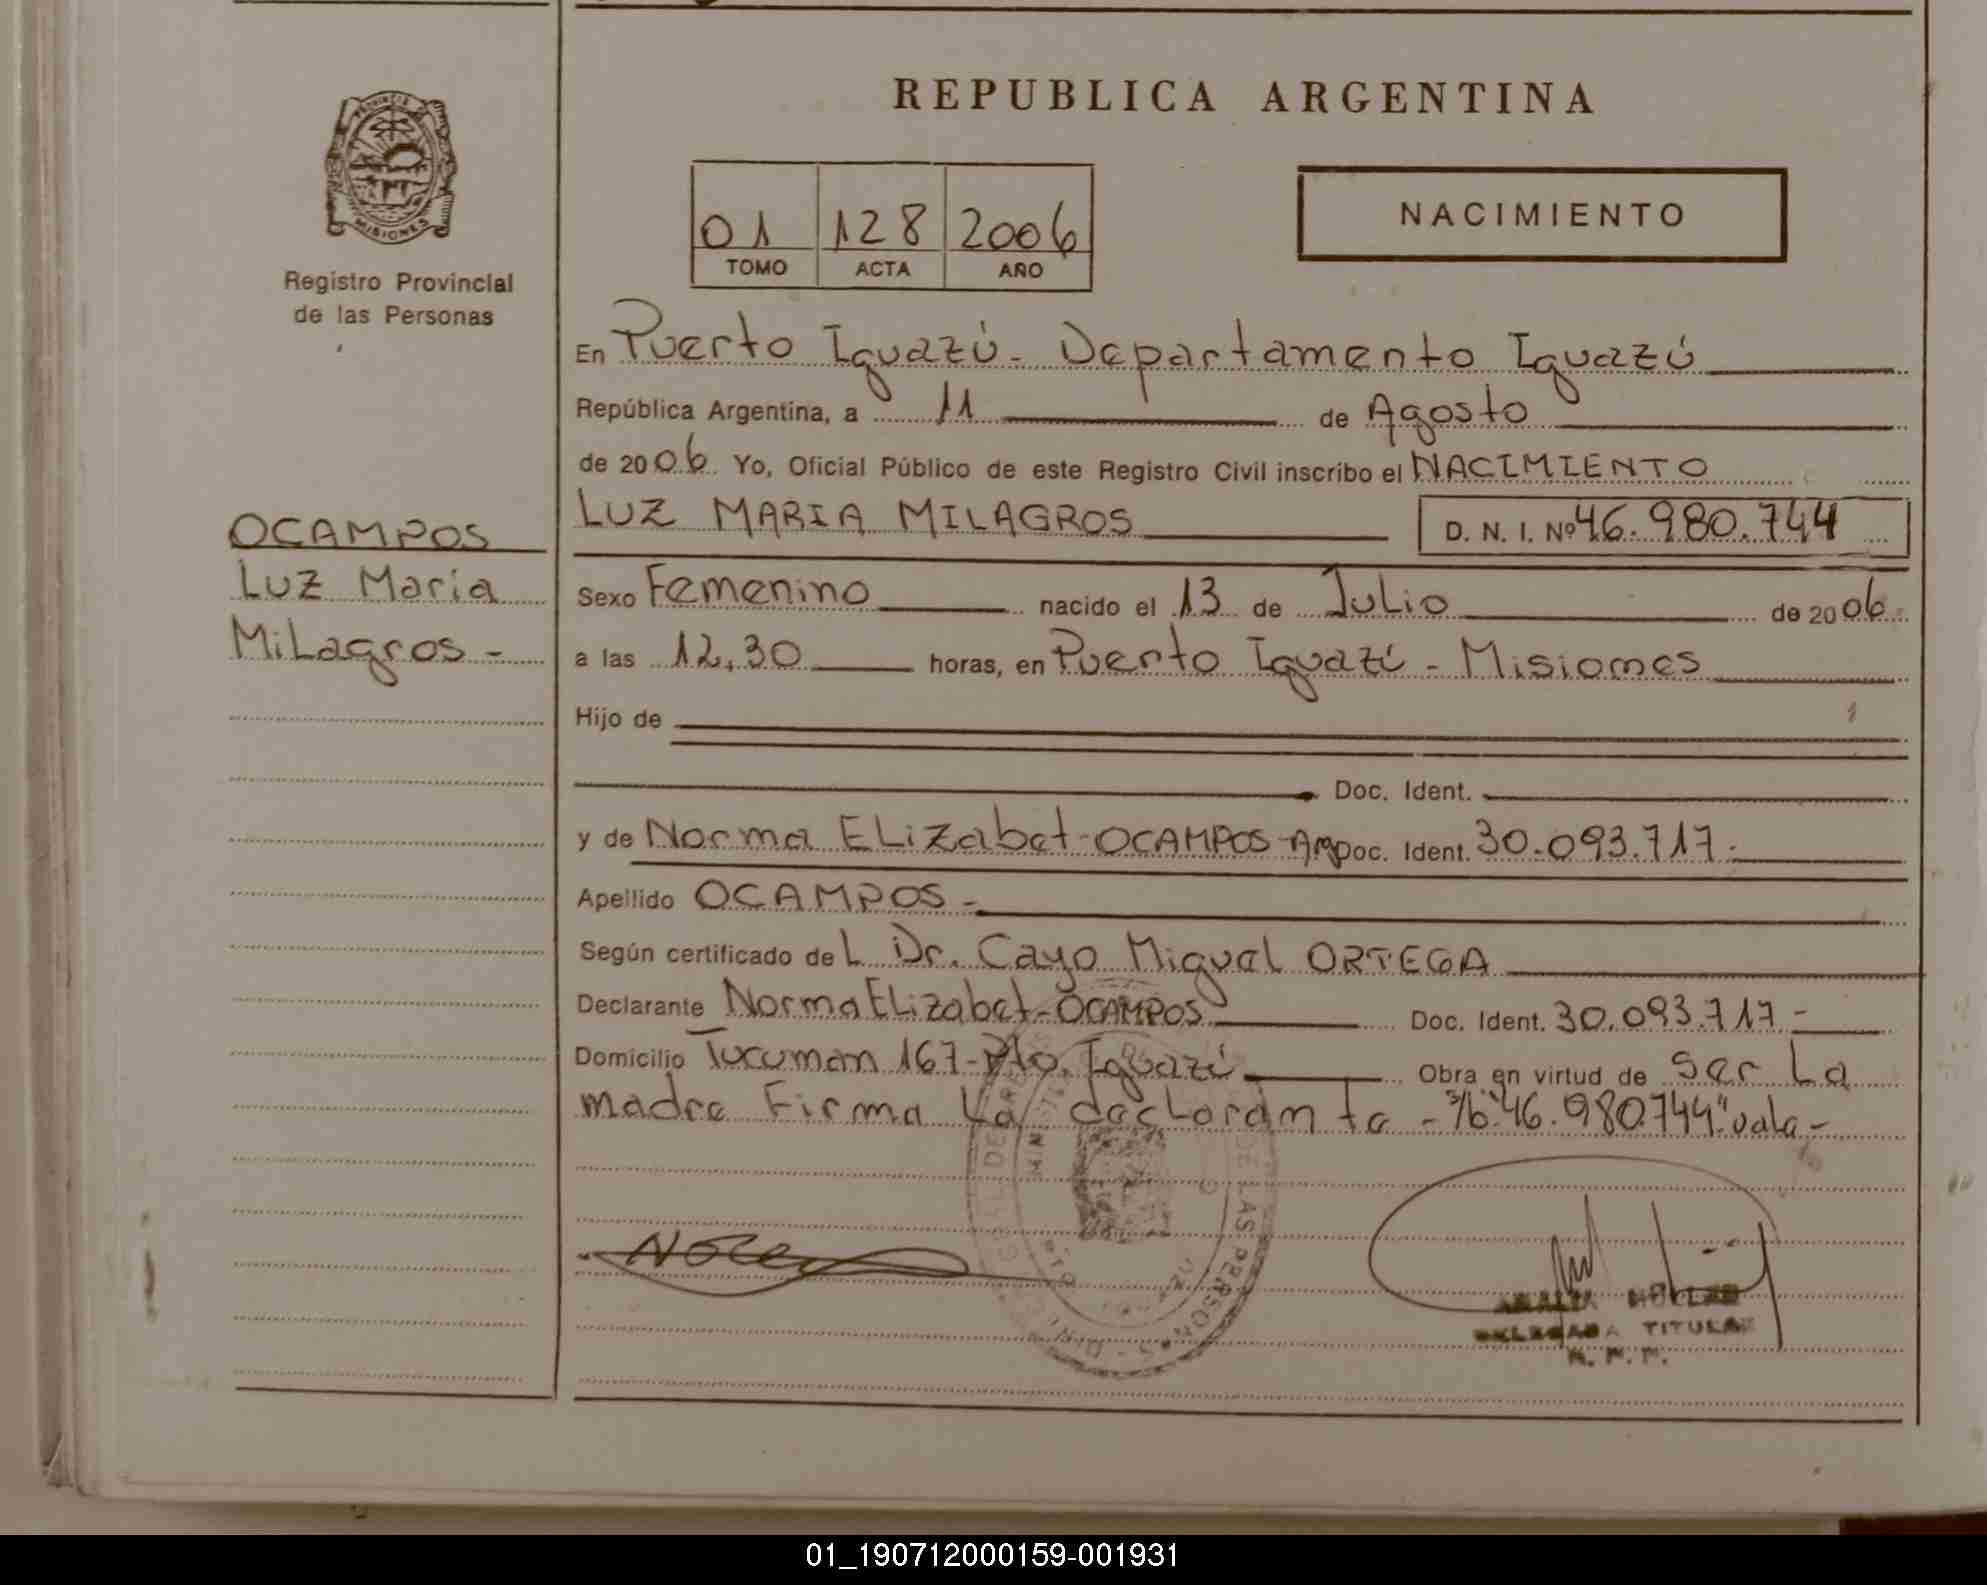 REPUBLICA ARGENTINA
PROVINCIA DE MISIONES
Registro Provincial
de las Personas
01 128 2006
TOMO ACTA AÑO
NACIMIENTO
OCAMPOS
Luz Maria
Milagros -
En Puerto Iguazú - Departamento Iguazú
República Argentina, a 11 de Agosto
de 2006 Yo, Oficial Público de este Registro Civil inscribo el NACIMIENTO
LUZ MARIA MILAGROS D. N. I. Nº 46.980.744
Sexo Femenino nacido el 13 de Julio de 2006
a las 12,30 horas, en Puerto Iguazú - Misiones
Hijo de
Doc. Ident.
y de Norma Elizabet - OCAMPOS - Arg Doc. Ident. 30.093.717.
Apellido OCAMPOS -
Según certificado del Dr. Cayo Miguel ORTEGA
Declarante Norma Elizabet - OCAMPOS Doc. Ident. 30.093.717 -
Domicilio Tucuman 167 - Pto. Iguazú Obra en virtud de ser La
madre Firma La declarante - S/b "46.980.744" vale -
DE LAS PERSONAS
DELEGADA TITULAR
R. P. P.
01_190712000159-001931